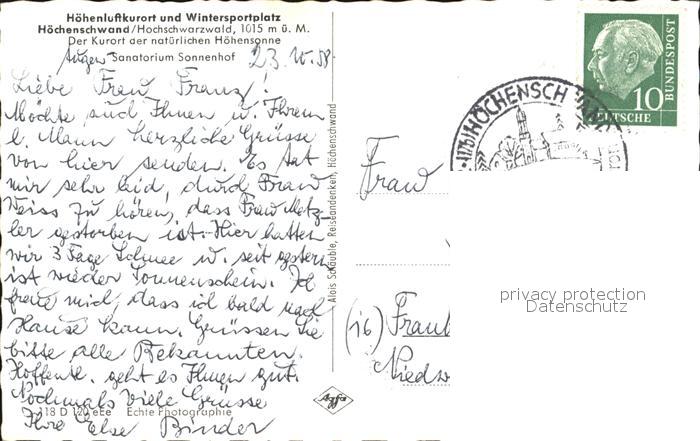 Höhenluftkurort und Wintersportplatz
Höchenschwand/Hochschwarzwald, 1015 m ü. M.
Der Kurort der natürlichen Höhensonne
Augen-Sanatorium Sonnenhof 23.10.58
Liebe Frau Franz!
Möchte auch Ihnen u. Ihrem
l. Mann herzliche Grüsse
von hier senden. Es tat
mir sehr leid, durch Frau
Weiss zu hören, dass Frau Metz-
ler gestorben ist. Hier hatten
wir 3 Tage Schnee u. seit gestern
ist wieder Sonnenschein. Ich
freue mich, dass ich bald nach
Hause kann. Grüssen Sie
bitte alle Bekannten.
Hoffentl. geht es Ihnen gut.
Nochmals viele Grüsse
Ihre Else Binder
218 D 120 eEe Echte Photographie
Alois Schäuble, Reiseandenken, Höchenschwand
Agfa
HÖCHENSCHWAND
10
DEUTSCHE
BUNDESPOST
Frau
(16) Frank
Niedw
privacy protection
Datenschutz